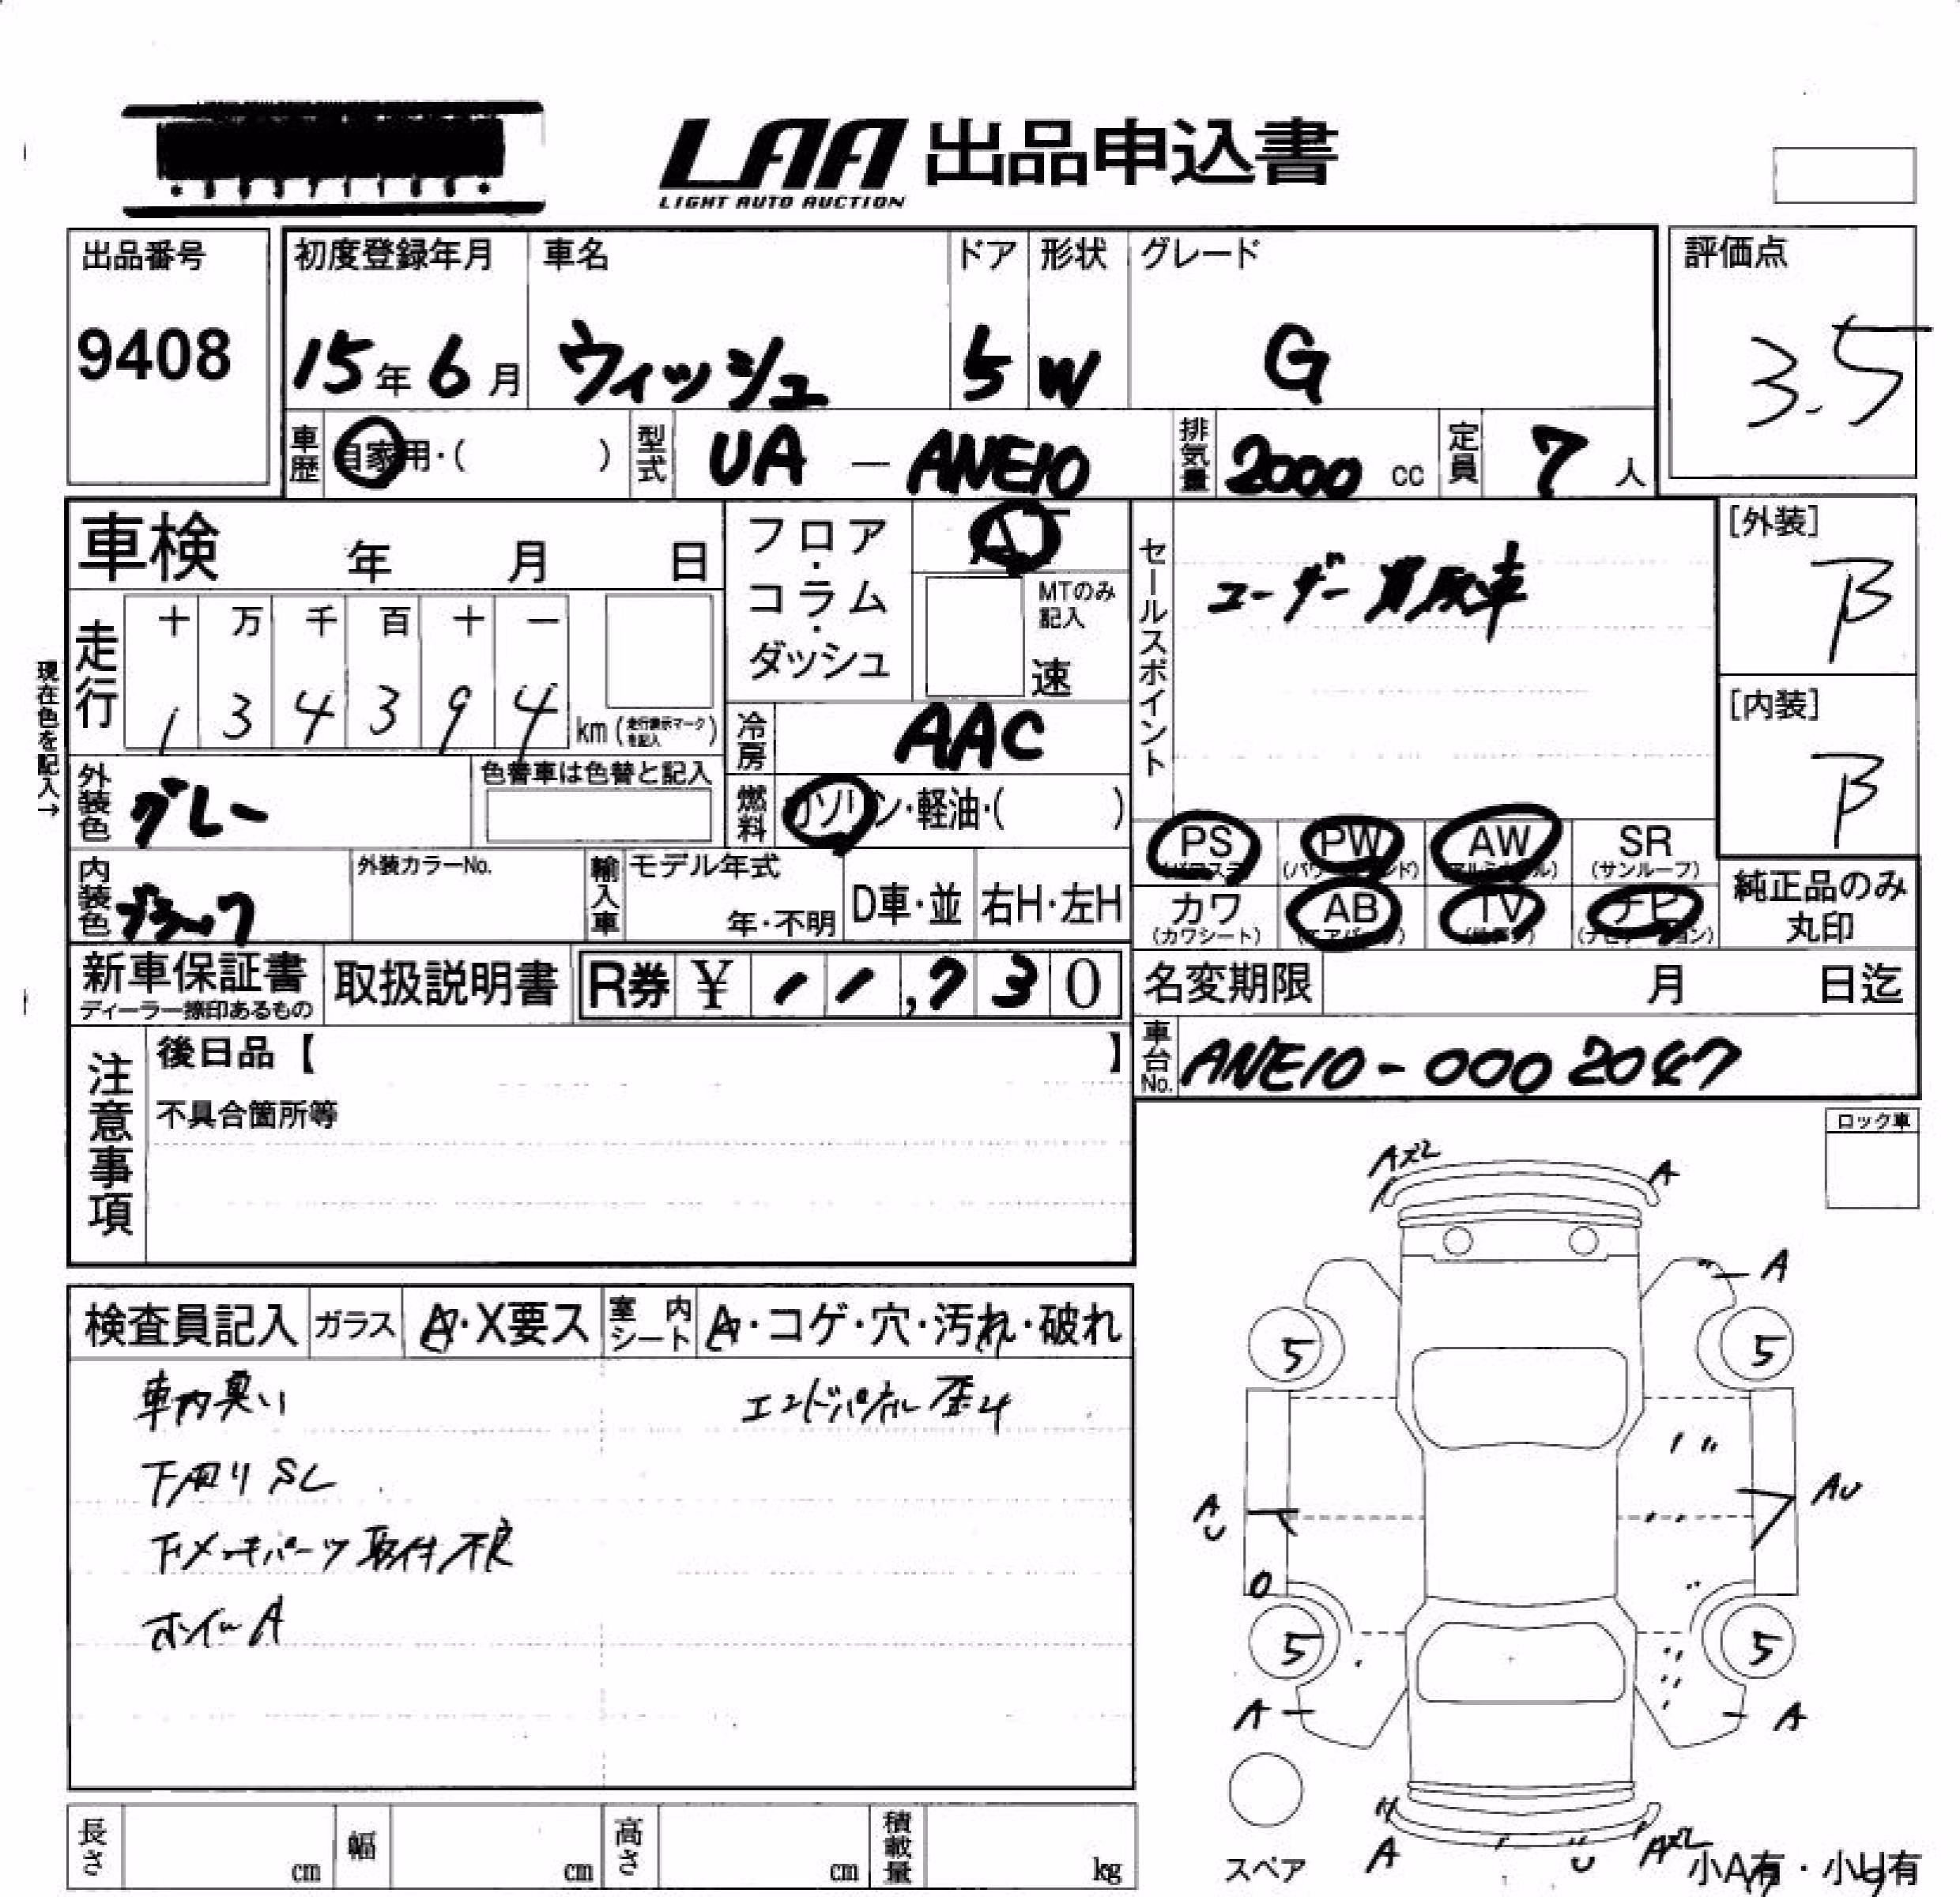 LAA 出品申込書
LIGHT AUTO AUCTION
出品番号 初度登録年月 車名 ドア 形状 グレード 評価点
9408 15年6月 ウィッシュ 5 W G 3.5
車歴 自家用・( ) 型式 UA — ANE10 排気量 2000 cc 定員 7 人
車検 年 月 日
フロア・コラム・ダッシュ AT
MTのみ記入
速
セールスポイント ユーザー買取車
[外装] B
[内装] B
現在色を記入→
走行 十 万 千 百 十 一
1 3 4 3 9 4 km (走行表示マークを記入)
冷房 AAC
外装色 グレー 色替車は色替と記入
燃料 ガソリン・軽油・( )
PS (パワステ) PW (パワーウインド) AW (アルミホイル) SR (サンルーフ)
カワ (カワシート) AB (エアバック) TV (テレビ) ナビ (ナビゲーション)
純正品のみ丸印
内装色 ブラック 外装カラーNo. 輸入車 モデル年式 年・不明 D車・並 右H・左H
新車保証書 ディーラー捺印あるもの 取扱説明書 R券 ¥ 11,730
名変期限 月 日迄
車台No. ANE10-0002047
注意事項 後日品【 】
不具合箇所等
ロック車
検査員記入 ガラス A・X要ス 室内シート A・コゲ・穴・汚れ・破れ
車内臭い エンドパネル歪み
下回りSL
下メッキパーツ取付不良
ホイルA
AX2 A
A
5 5
AU AU
5 5
A A
A U AX2
スペア
小A有・小U有
長さ cm 幅 cm 高さ cm 積載量 kg